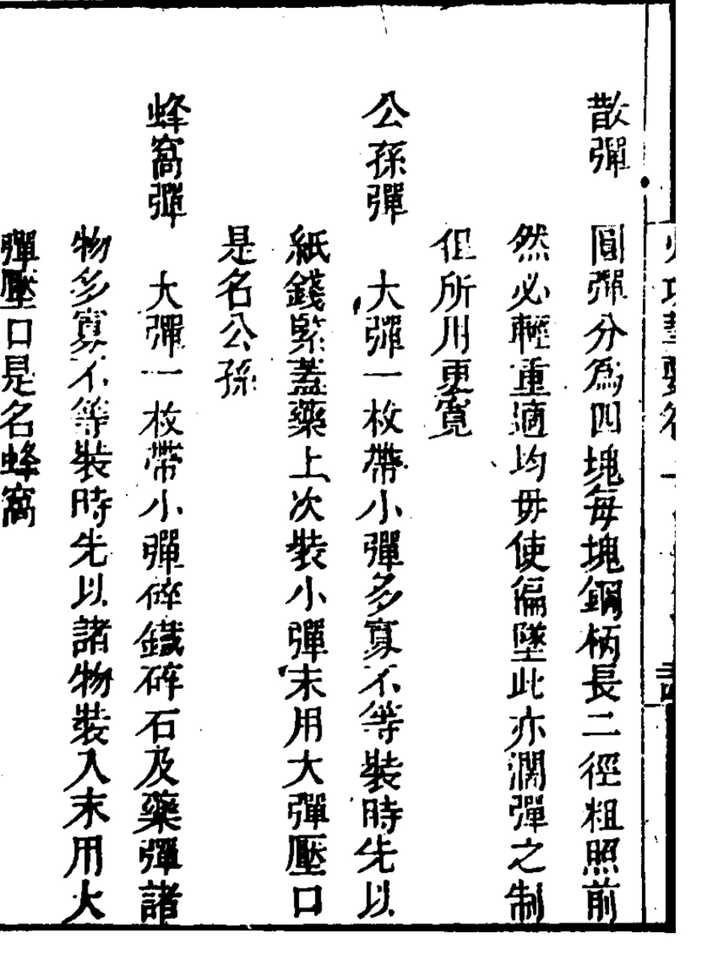 散彈
圓彈分爲四塊每塊鋼柄長二徑粗照前
然必輕重適均毋使偏墜此亦濶彈之制
但所用更寛
公孫彈　大彈一枚帶小彈多寡不等裝時先以
紙錢緊蓋藥上次裝小彈末用大彈壓口
是名公孫
蜂窩彈　大彈一枚帶小彈碎鐵碎石及藥彈諸
物多寡不等裝時先以諸物裝入末用大
彈壓口是名蜂窩